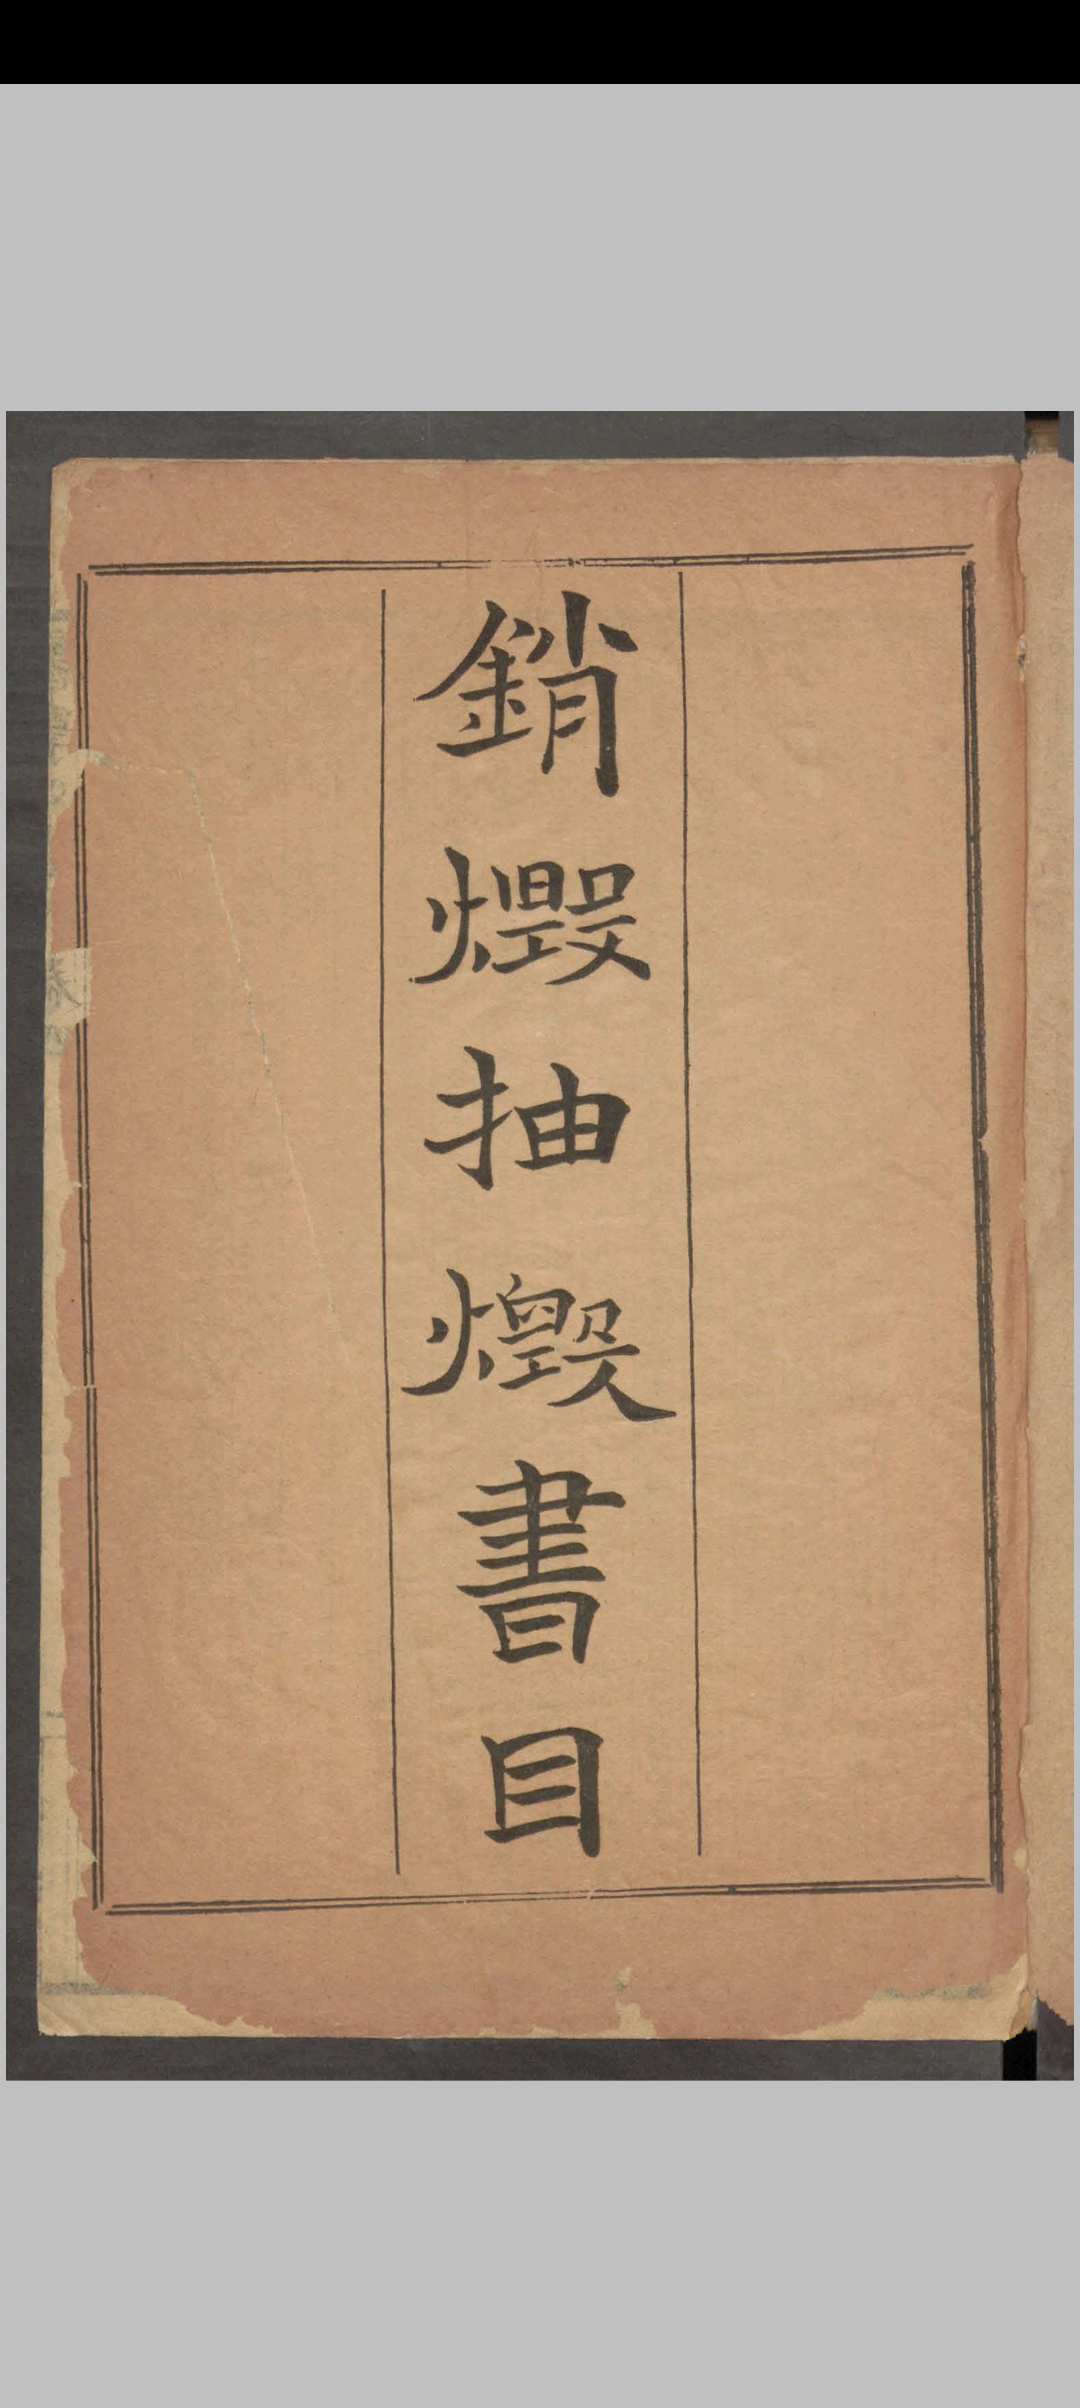 銷燬抽燬書目